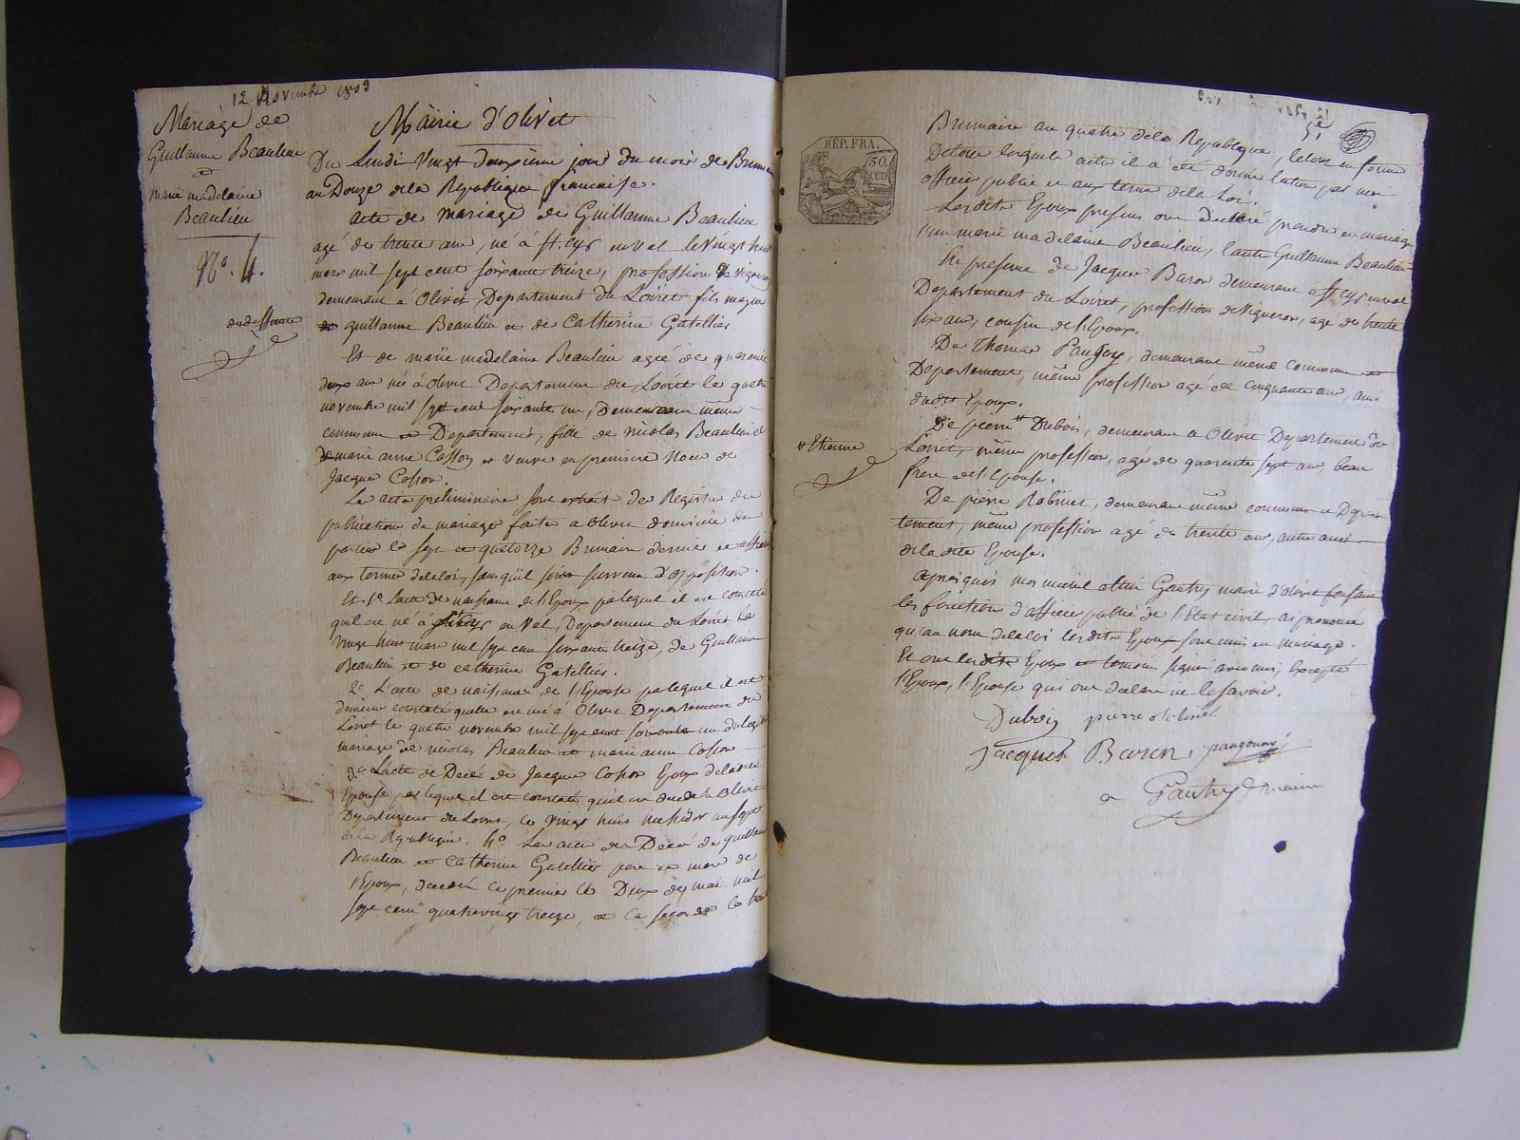 12 Novembre 1803
Mariage de
Guillaume Beaulieu
et
marie madelaine
Beaulieu
No. 4.
Mairie d'Olivet
Du Lundi Vingt deuxieme jour du mois de Brum
an Douze de la Republique francaise.
acte de mariage de Guillaume Beaulieu
agé de trente ans, né à st. cyr en val le vingt huit
mars mil sept cent soixante treize, profession de vigneron
demeurant à Olivet, Departement du Loiret fils majeur
de guillaume Beaulieu et de Catherine Gatellier
Et de marie madelaine Beaulieu agée de quarante
deux ans né à Olivet Departement du Loiret le quatre
novembre mil sept cent soixante un, demeurant même
commune et Departement, fille de nicolas Beaulieu et
de marie anne Cosson et veuve en premiere Noce de
Jacque Cosson.
Les actes preliminaires sont extrait des Registre des
publications de mariage faites a Olivet domicile des
parties les sept et quatorze Brumaire dernier et affiché
aux termes de la loi, sans qu'il soit survenu d'opposition.
Et 1o L'acte de naissance de l'Epoux par lequel il est constaté
qu'il est né à st cyr en Val, Departement du Loiret le
vingt huit mars mil sept cent soixante treize, de Guillaume
Beaulieu et de catherine Gatellier.
2o L'acte de naissance de l'Epouse par lequel il est
constaté quelle est née à Olivet Departement du
Loiret le quatre novembre mil sept cent soixante un du legitime
mariage de nicolas Beaulieu et marie anne Cosson
3o L'acte de Decé de Jacque Cosson Epoux de la dite
Epouse par lequel il est constaté qu'il est decedé à Olivet
Departement du Loiret, le vingt huit messidor an sept
de la Republique. 4o Les actes de Décé de guillaume
Beaulieu et Catherine Gatellier pere et mere de
l'Epoux, decedé le premier le Deux de mai mil
sept cent quatrevingt treize, et la seconde le
REP. FRA.
50
CEN
Brumaire an quatre de la Republique, le tout en forme
De tous lesquels actes il a été donné lecture par moi
officier public et aux terme de la Loi.
Lesdits Epoux presens ont Declaré prendre en mariage
l'un marie madelaine Beaulieu, l'autre Guillaume Beaulieu
En presence de Jacque Baron demeurant a st cyr en val
Departement du Loiret, profession de Vigneron, agé de trente
six ans, cousin de l'Epoux.
De Thomas Pangoy, demeurant même Commune et
Departement, même profession agé de cinquante ans, ami
dudit Epoux.
De pierre # Dubois, demeurant a Olivet Departement du
# Etienne
Loiret, même profession, agé de quarente sept ans, beau
frere de l'Epouse.
De pierre Robinet, demeurant même commune et Depar
tement, même profession agé de trente ans, autre ami
de la dite Epouse.
Après quoi moi michel Gautry maire d'olivet faisant
les fonctions d'officier public de l'Etat civil, ai prononcé
qu'au nom de la loi lesdits Epoux sont unis en mariage.
Et ont lesdits Epoux et temoins signé avec moi, Excepté
l'Epoux, l'Epouse qui ont declaré ne le savoir.
Dubois pierre Robinet
Jacques Baron
Gautry maire